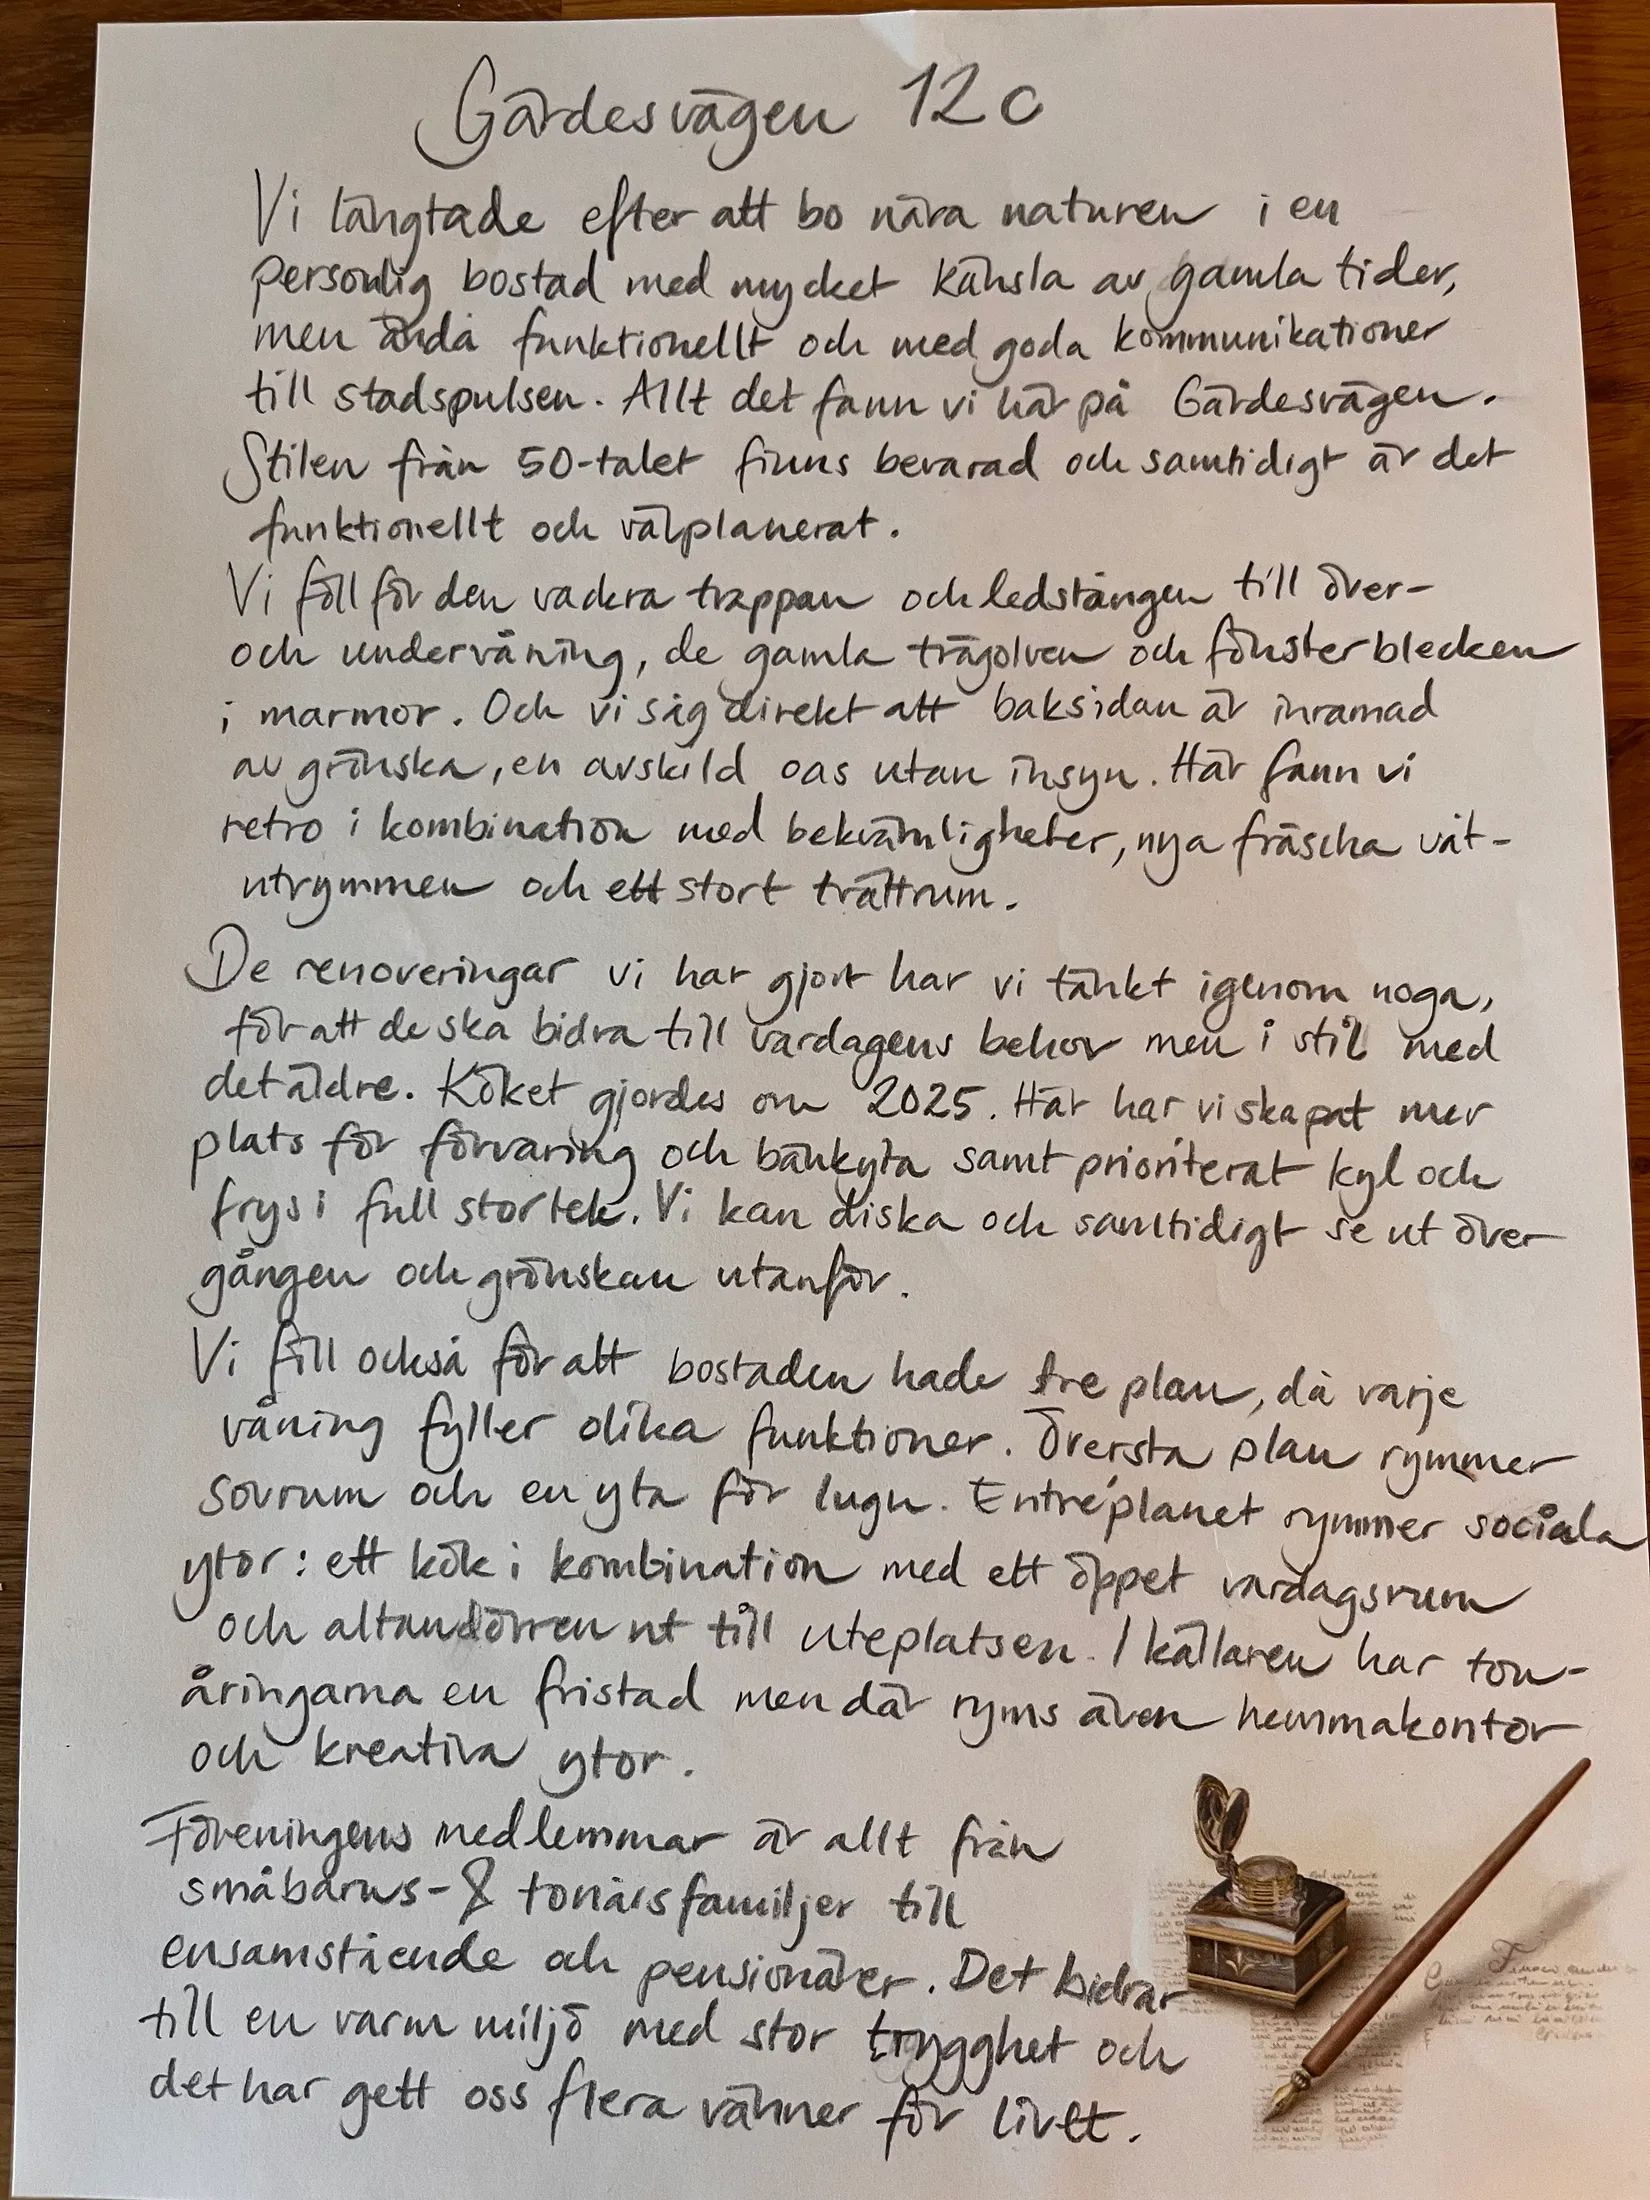 Gärdesvägen 12c
Vi längtade efter att bo nära naturen i en
personlig bostad med mycket känsla av gamla tider,
men ändå funktionellt och med goda kommunikationer
till stadspulsen. Allt det fann vi här på Gärdesvägen.
Stilen från 50-talet finns bevarad och samtidigt är det
funktionellt och välplanerat.
Vi föll för den vackra trappan och ledstången till över-
och undervåning, de gamla trägolven och fönsterblecken
i marmor. Och vi såg direkt att baksidan är inramad
av grönska, en avskild oas utan insyn. Här fann vi
retro i kombination med bekvämligheter, nya fräscha våt-
utrymmen och ett stort tvättrum.
De renoveringar vi har gjort har vi tänkt igenom noga,
för att de ska bidra till vardagens behov men i stil med
det äldre. Köket gjordes om 2025. Här har vi skapat mer
plats för förvaring och bänkyta samt prioriterat kyl och
frys i full storlek. Vi kan diska och samtidigt se ut över
gången och grönskan utanför.
Vi föll också för att bostaden hade tre plan, då varje
våning fyller olika funktioner. Översta plan rymmer
sovrum och en yta för lugn. Entréplanet rymmer sociala
ytor: ett kök i kombination med ett öppet vardagsrum
och altandörren ut till uteplatsen. I källaren har ton-
åringarna en fristad men där ryms även hemmakontor
och kreativa ytor.
Föreningens medlemmar är allt från
småbarns- & tonårsfamiljer till
ensamstående och pensionärer. Det bidrar
till en varm miljö med stor trygghet och
det har gett oss flera vänner för livet.